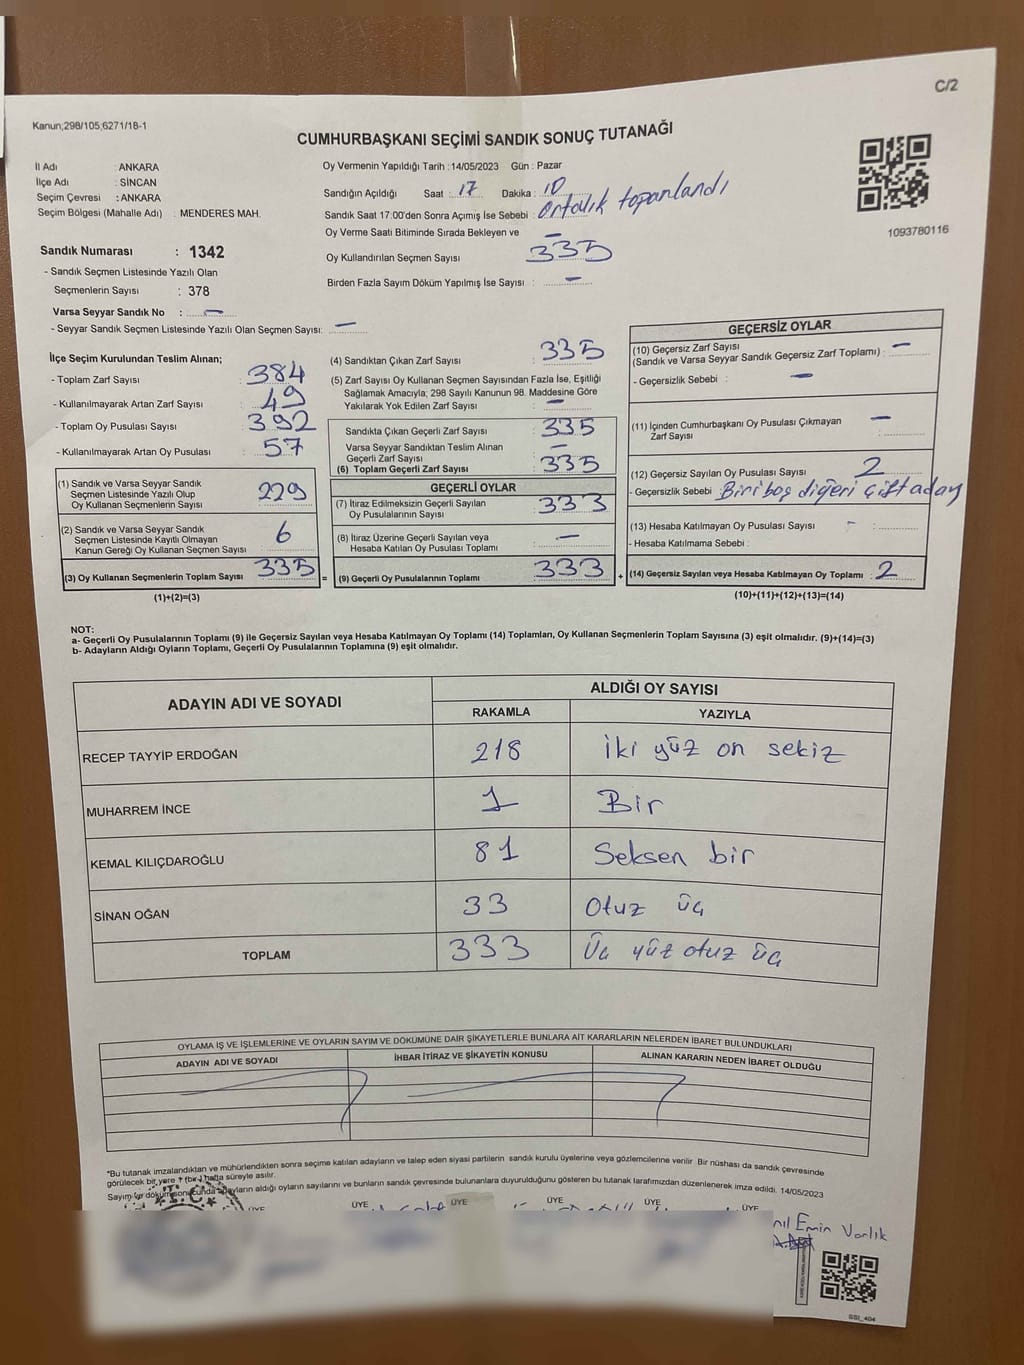 C/2
Kanun;298/105;6271/18-1
CUMHURBAŞKANI SEÇİMİ SANDIK SONUÇ TUTANAĞI
İl Adı : ANKARA
İlçe Adı : SİNCAN
Seçim Çevresi : ANKARA
Seçim Bölgesi (Mahalle Adı) : MENDERES MAH.
Oy Vermenin Yapıldığı Tarih :14/05/2023 Gün : Pazar
Sandığın Açıldığı Saat : 17 Dakika : 10
Sandık Saat 17:00'den Sonra Açımış İse Sebebi : Ortalık topanlandı
Oy Verme Saati Bitiminde Sırada Bekleyen ve –
Oy Kullandırılan Seçmen Sayısı 335
Birden Fazla Sayım Döküm Yapılmış İse Sayısı : –
1093780116
Sandık Numarası : 1342
- Sandık Seçmen Listesinde Yazılı Olan
Seçmenlerin Sayısı : 378
Varsa Seyyar Sandık No : –
- Seyyar Sandık Seçmen Listesinde Yazılı Olan Seçmen Sayısı: –
İlçe Seçim Kurulundan Teslim Alınan;
- Toplam Zarf Sayısı : 384
- Kullanılmayarak Artan Zarf Sayısı : 49
- Toplam Oy Pusulası Sayısı : 392
- Kullanılmayarak Artan Oy Pusulası : 57
(1) Sandık ve Varsa Seyyar Sandık
Seçmen Listesinde Yazılı Olup
Oy Kullanan Seçmenlerin Sayısı 229
(2) Sandık ve Varsa Seyyar Sandık
Seçmen Listesinde Kayıtlı Olmayan
Kanun Gereği Oy Kullanan Seçmen Sayısı 6
(3) Oy Kullanan Seçmenlerin Toplam Sayısı 335 =
(1)+(2)=(3)
(4) Sandıktan Çıkan Zarf Sayısı : 335
(5) Zarf Sayısı Oy Kullanan Seçmen Sayısından Fazla İse, Eşitliği
Sağlamak Amacıyla; 298 Sayılı Kanunun 98. Maddesine Göre
Yakılarak Yok Edilen Zarf Sayısı : –
Sandıkta Çıkan Geçerli Zarf Sayısı : 335
Varsa Seyyar Sandıktan Teslim Alınan
Geçerli Zarf Sayısı –
(6) Toplam Geçerli Zarf Sayısı : 335
GEÇERLİ OYLAR
(7) İtiraz Edilmeksizin Geçerli Sayılan
Oy Pusulalarının Sayısı : 333
(8) İtiraz Üzerine Geçerli Sayılan veya
Hesaba Katılan Oy Pusulası Toplamı –
(9) Geçerli Oy Pusulalarının Toplamı 333 +
GEÇERSİZ OYLAR
(10) Geçersiz Zarf Sayısı
(Sandık ve Varsa Seyyar Sandık Geçersiz Zarf Toplamı) : –
- Geçersizlik Sebebi : –
(11) İçinden Cumhurbaşkanı Oy Pusulası Çıkmayan
Zarf Sayısı : –
(12) Geçersiz Sayılan Oy Pusulası Sayısı : 2
- Geçersizlik Sebebi : Biri boş diğeri çift aday
(13) Hesaba Katılmayan Oy Pusulası Sayısı : -
- Hesaba Katılmama Sebebi :
(14) Geçersiz Sayılan veya Hesaba Katılmayan Oy Toplamı : 2
(10)+(11)+(12)+(13)=(14)
NOT:
a- Geçerli Oy Pusulalarının Toplamı (9) ile Geçersiz Sayılan veya Hesaba Katılmayan Oy Toplamı (14) Toplamları, Oy Kullanan Seçmenlerin Toplam Sayısına (3) eşit olmalıdır. (9)+(14)=(3)
b- Adayların Aldığı Oyların Toplamı, Geçerli Oy Pusulalarının Toplamına (9) eşit olmalıdır.
ADAYIN ADI VE SOYADI ALDIĞI OY SAYISI
RAKAMLA YAZIYLA
RECEP TAYYİP ERDOĞAN 218 İki yüz on sekiz
MUHARREM İNCE 1 Bir
KEMAL KILIÇDAROĞLU 81 Seksen bir
SİNAN OĞAN 33 Otuz üç
TOPLAM 333 Üç yüz otuz üç
OYLAMA İŞ VE İŞLEMLERİNE VE OYLARIN SAYIM VE DÖKÜMÜNE DAİR ŞİKAYETLERLE BUNLARA AİT KARARLARIN NELERDEN İBARET BULUNDUKLARI
ADAYIN ADI VE SOYADI İHBAR İTİRAZ VE ŞİKAYETİN KONUSU ALINAN KARARIN NEDEN İBARET OLDUĞU
*Bu tutanak imzalandıktan ve mühürlendikten sonra seçime katılan adayların ve talep eden siyasi partilerin sandık kurulu üyelerine veya gözlemcilerine verilir. Bir nüshası da sandık çevresinde
görülecek bir yere 1 (bir) hafta süreyle asılır.
Sayım ve döküm sonucunda adayların aldığı oyların sayılarını ve bunların sandık çevresinde bulunanlara duyurulduğunu gösteren bu tutanak tarafımızdan düzenlenerek imza edildi. 14/05/2023
T.C.
ÜYE ÜYE ÜYE ÜYE ÜYE ÜYE
Emin Varlık
SSI_404